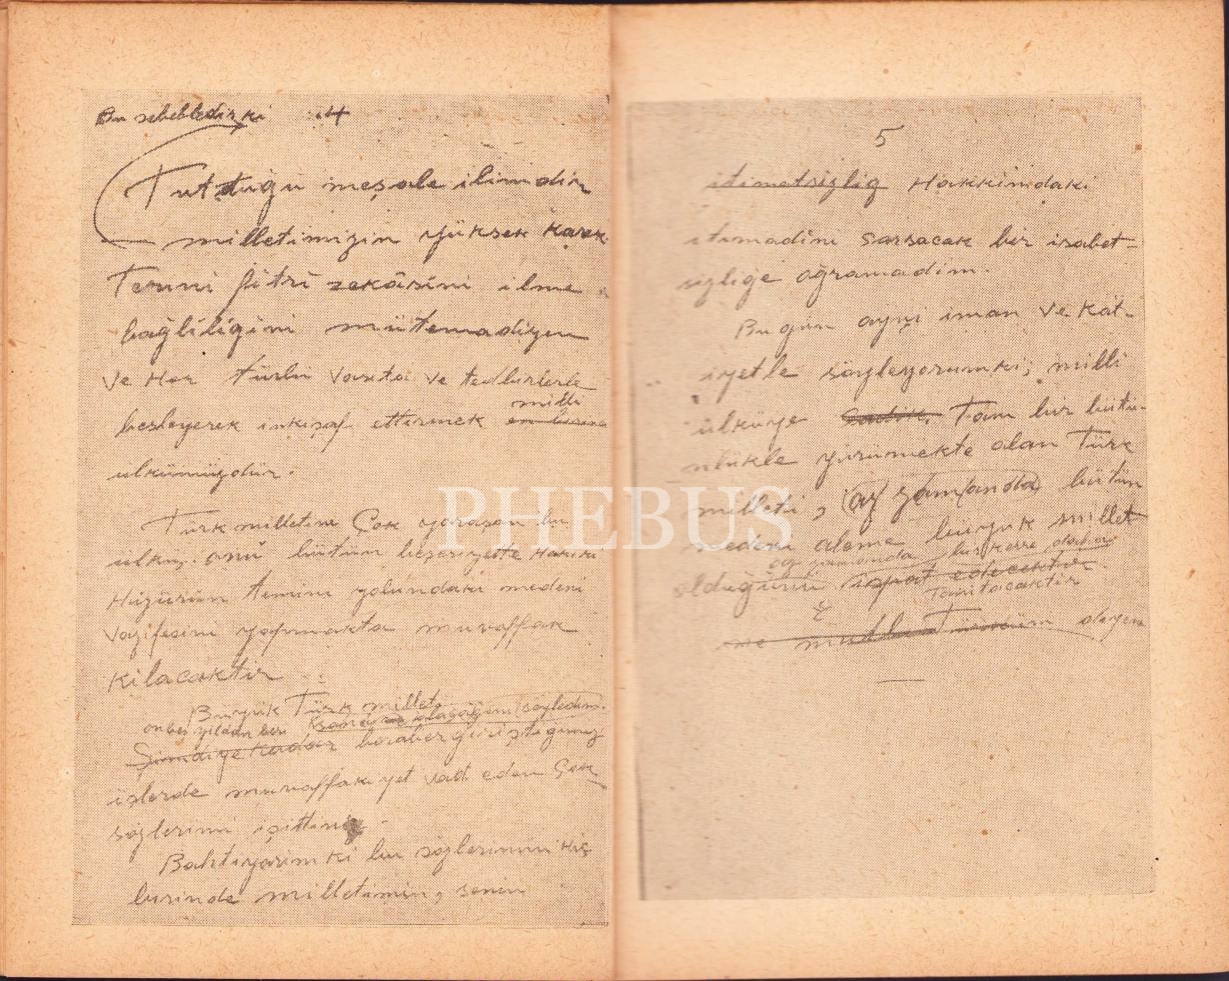 Bu sebebledirki 4
Tuttuğu meşale ilimdir
milletimizin yüksek karak
Terini fitrî zekâsini ilme
bağlîliğini mütemadiyen
ve Her türlü vasıta ve tedbirlerle
millî
besleyerek inkişaf ettirmek
ülkümüzdür.
Türk milletine Çok yaraşan bu
ülkü, onu bütün beşeriyette Hakiki
Huzurun temini yolundaki medenî
vazifesini yapmakta muvaffak
kilacaktir
Büyük Türk milleti
onbeş yıldan beri söyledim.
Şimdiye kadar beraber giriştiğimiz
işlerde muvaffakiyet vad eden Çok
sözlerimi işittin
Bahtiyarim ki bu sözlerimin Hiç
birinde milletimin, senin
5
itimatsizliğ Hakkimdaki
itimadini sarsacak bir isabet-
sizliğe oğramadim.
Bu gün ayni iman ve kat-
iyetle söyleyorumki, millî
ülküye sadık Tam bir bütü-
nlükle yürümekte olan Türk
milleti, az zamanda bütün
medeni aleme büyük millet
az zamanda bir kerre daha
olduğunu ispat edecektir.
Tanitacaktir
ne mutlu Türküm deyen
PHEBUS